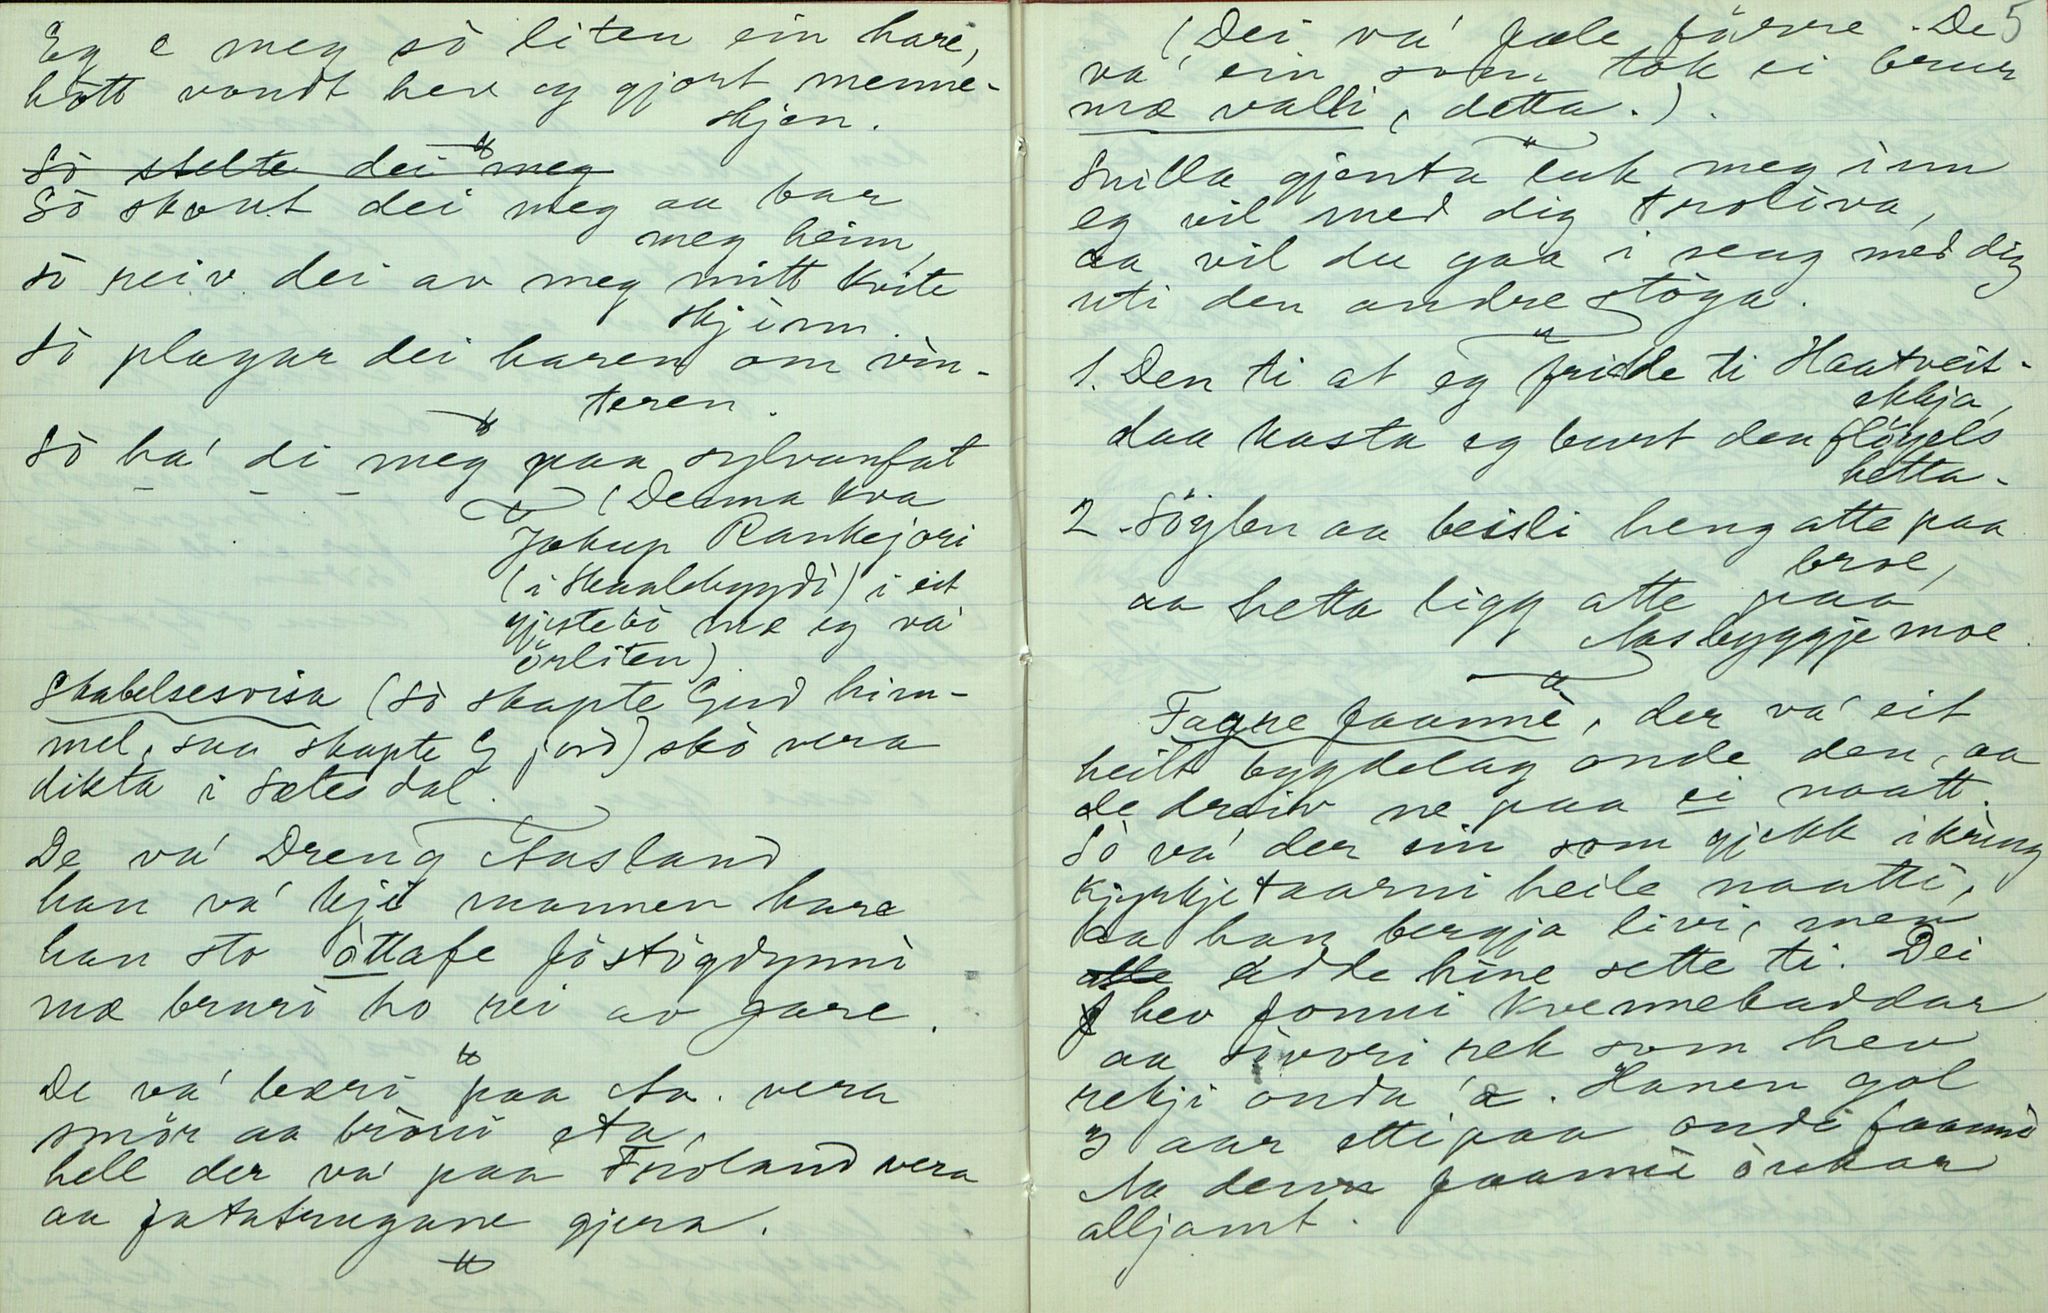 Eg e meg só liten ein hare,
hott vondt hev eg gjort menne-
skjen.
Só stelte dei meg
Só skout dei meg aa bar
meg heim,
Só reiv dei av meg mitt kvite
skjinn.
Só plagar dei haren om vin-
teren.
Só ha' di meg paa sylvanfat
(Denna kva
Jakup Rankejori
(i Skaalebygdi) i eit
gjestebó me eg va'
örliten)
Skabelsesvisa (Só skapte Gud him-
mel, saa skapte G jord) skó vera
dikta i Sætesdal.
De va' Dreng Aasland
han va' kji mannen bare
han sto óttafe föstögdynni
mæ bruri ho rei av gare.
De va' bæri paa Aa. vera
smör aa bröni eta,
hell der va' paa Fróland vera
aa fatatrugane gjera.
5
(Dei va' fæle förre. De
va' ein som tok ei brur
mæ valli, detta.).
Snilla gjenta luk meg inn
eg vil med dig troliva,
aa vil du gaa i seng med dig
uti den andre stöga.
1. Den ti at eg fridde ti Haatveit-
skkja,
daa kasta eg burt den flöyels
hetta.
2. Söylen aa beisli heng atte paa
broe,
aa hetta ligg atte paa
Aasbyggje moe.
Fagre faanne, der va' eit
heilt bygdelag onde den, aa
de dreiv ne paa ei naatt.
Só va' der ein som gjekk ikring
kjyrkjetaarni heile naatti,
aa han bergja livi, men
adde hine sette ti. Dei
hev fonni kvennekaddar
aa sivori rek som hev
rekji onda 'a. Hanen gol
3 aar ettipaa ondi faanne
Aa denn faanne órekar
alljamt.